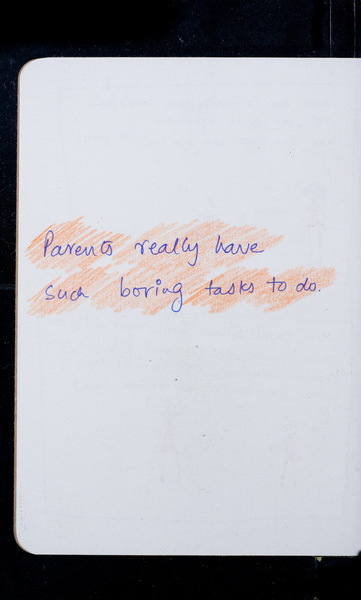 Parents really have
such boring tasks to do.